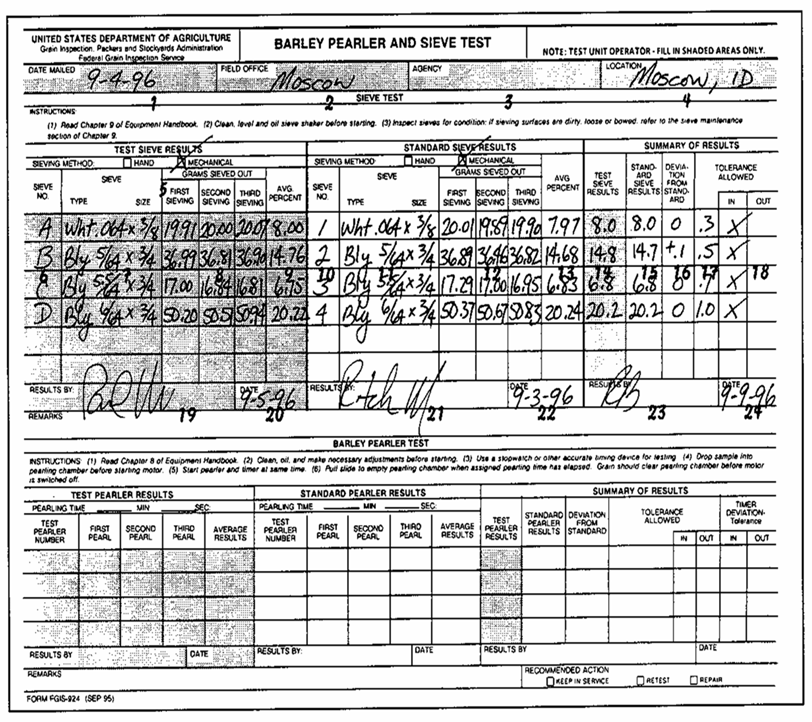 UNITED STATES DEPARTMENT OF AGRICULTURE
Grain Inspection, Packers and Stockyards Administration
Federal Grain Inspection Service
BARLEY PEARLER AND SIEVE TEST
NOTE: TEST UNIT OPERATOR - FILL IN SHADED AREAS ONLY.
DATE MAILED 9-4-96 FIELD OFFICE Moscow AGENCY LOCATION Moscow, ID
1 2 3 4
SIEVE TEST
INSTRUCTIONS:
(1) Read Chapter 9 of Equipment Handbook. (2) Clean, level and oil sieve shaker before starting. (3) Inspect sieves for condition: if sieving surfaces are dirty, loose or bowed, refer to the sieve maintenance
section of Chapter 9.
TEST SIEVE RESULTS STANDARD SIEVE RESULTS SUMMARY OF RESULTS
SIEVING METHOD: HAND X MECHANICAL SIEVING METHOD: HAND X MECHANICAL
SIEVE NO. SIEVE TYPE SIZE 5 GRAMS SIEVED OUT FIRST SIEVING SECOND SIEVING THIRD SIEVING AVG. PERCENT SIEVE NO. SIEVE TYPE SIZE GRAMS SIEVED OUT FIRST SIEVING SECOND SIEVING THIRD SIEVING AVG PERCENT TEST SIEVE RESULTS STAND-ARD SIEVE RESULTS DEVIA-TION FROM STAND-ARD TOLERANCE ALLOWED IN OUT
A Wht .064 x 3/8 19.91 20.00 20.07 8.00 1 Wht .064 x 3/8 20.01 19.89 19.90 7.97 8.0 8.0 0 .3 X
B Bly 5/64 x 3/4 36.99 36.81 36.90 14.76 2 Bly 5/64 x 3/4 36.89 36.46 36.82 14.68 14.8 14.7 +.1 .5 X
6 7 8 9 10 11 12 13 14 15 16 17 18
Bly x 3/4 17.00 16.84 16.81 6.75 3 Bly x 3/4 17.29 17.00 16.95 6.83 6.8 6.8 0 X
D Bly 6/64 x 3/4 50.20 50.51 50.94 20.22 4 Bly 6/64 x 3/4 50.37 50.67 50.83 20.24 20.2 20.2 0 1.0 X
RESULTS BY: DATE 9-5-96 RESULTS BY: DATE 9-3-96 RESULTS BY RB DATE 9-9-96
19 20 21 22 23 24
REMARKS
BARLEY PEARLER TEST
INSTRUCTIONS: (1) Read Chapter 8 of Equipment Handbook. (2) Clean, oil, and make necessary adjustments before starting. (3) Use a stopwatch or other accurate timing device for testing (4) Drop sample into
pearling chamber before starting motor. (5) Start pearler and timer at same time. (6) Pull slide to empty pearling chamber when assigned pearling time has elapsed. Grain should clear pearling chamber before motor
is switched off.
TEST PEARLER RESULTS STANDARD PEARLER RESULTS SUMMARY OF RESULTS
PEARLING TIME MIN SEC. PEARLING TIME MIN SEC.
TEST PEARLER NUMBER FIRST PEARL SECOND PEARL THIRD PEARL AVERAGE RESULTS TEST PEARLER NUMBER FIRST PEARL SECOND PEARL THIRD PEARL AVERAGE RESULTS TEST PEARLER RESULTS STANDARD PEARLER RESULTS DEVIATION FROM STANDARD TOLERANCE ALLOWED IN OUT TIMER DEVIATION- Tolerance IN OUT
RESULTS BY DATE RESULTS BY: DATE RESULTS BY DATE
REMARKS RECOMMENDED ACTION
KEEP IN SERVICE RETEST REPAIR
FORM FGIS-924 (SEP 95)